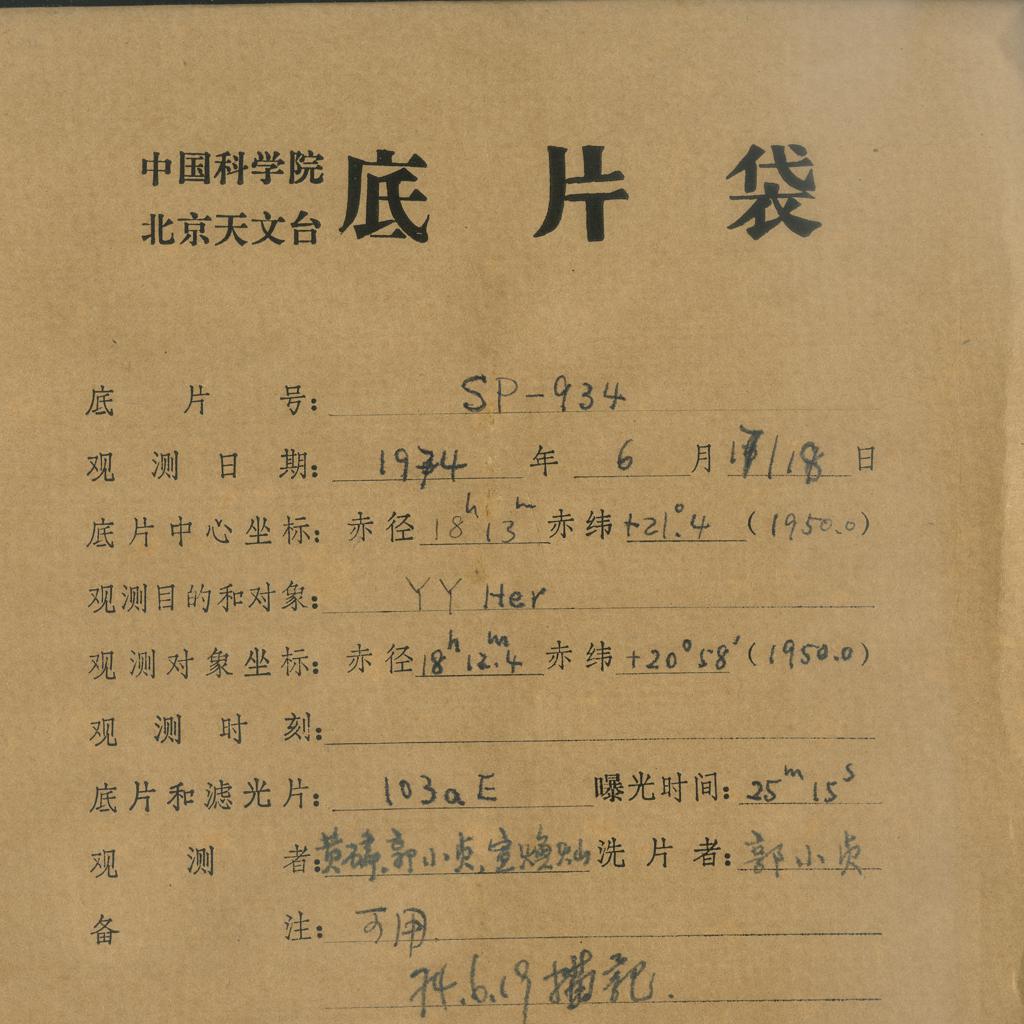 中国科学院
北京天文台
底片袋
底片号: SP-934
观测日期: 1974 年 6 月 17/18 日
底片中心坐标: 赤径 18h 13m 赤纬 +21°.4 (1950.0)
观测目的和对象: YY Her
观测对象坐标: 赤径 18h 12m.4 赤纬 +20°58′ (1950.0)
观测时刻:
底片和滤光片: 103aE 曝光时间: 25m 15s
观测者: 黄磷,郭小贞,宣焕灿 洗片者: 郭小贞
备注: 可用
74.6.19